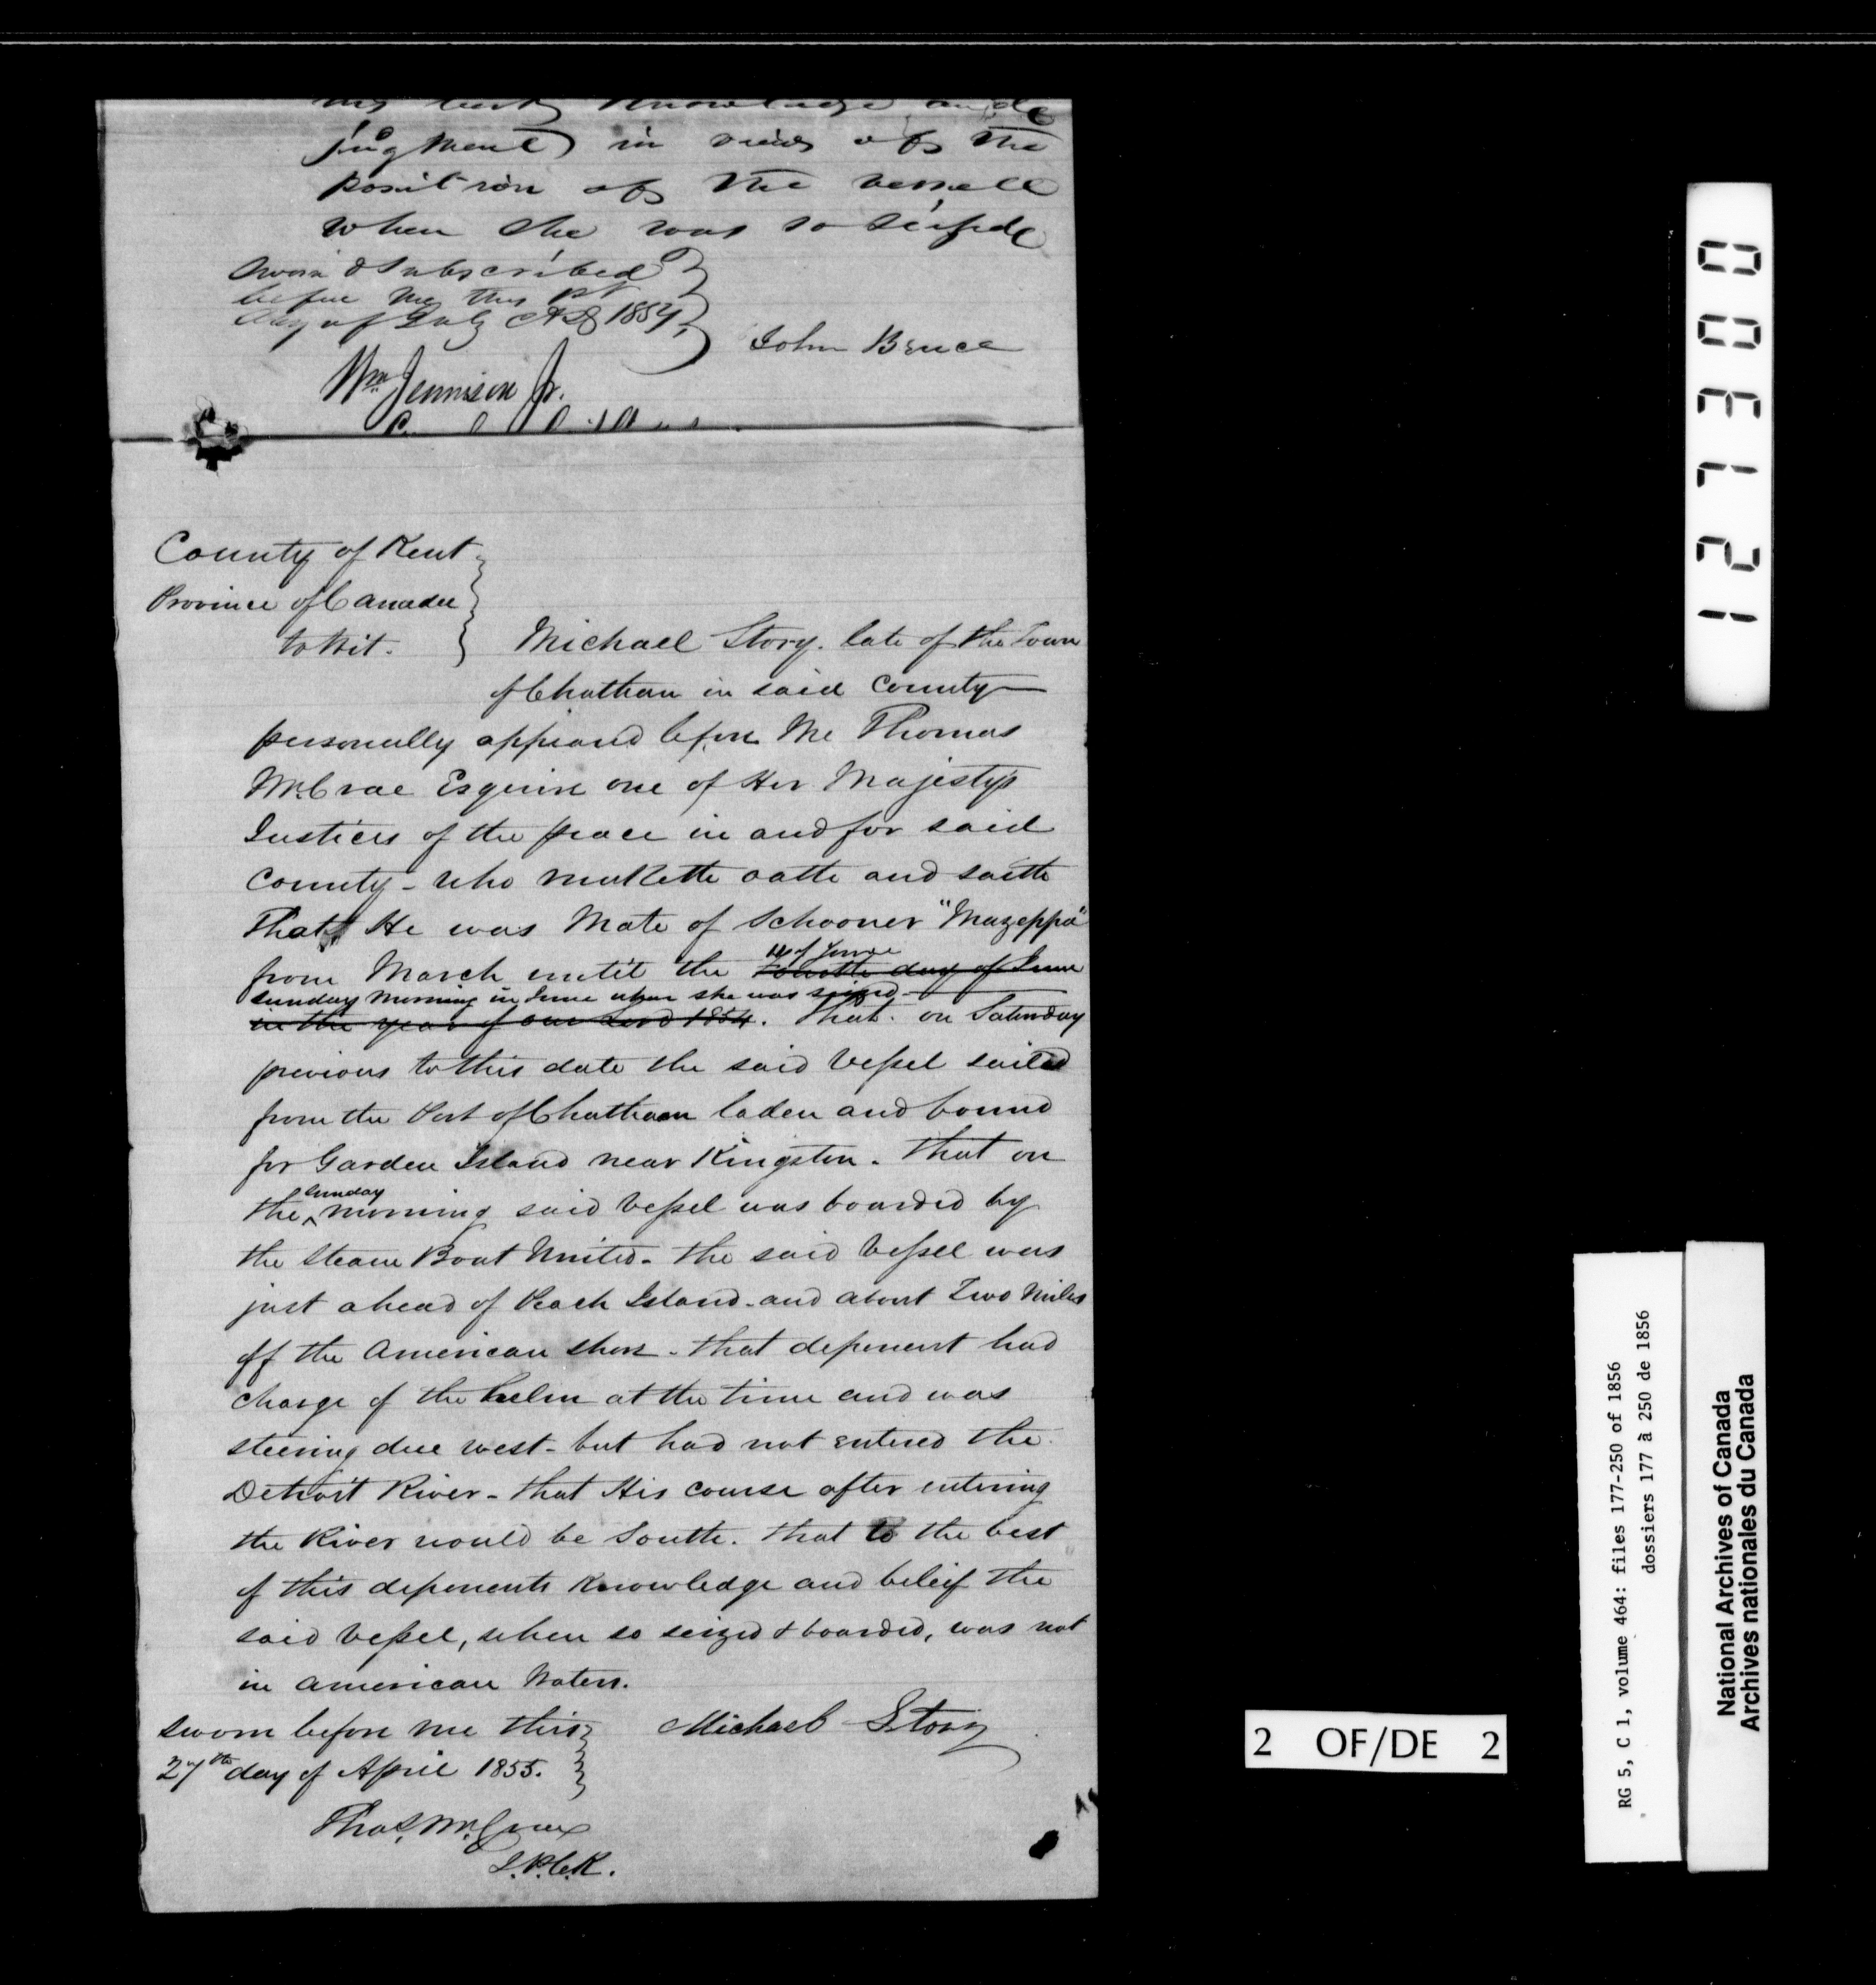 my best knowledge and
jugment in view of the
position of the vessell
when she was so seized
Sworn & Subscribed
before me this 1st
day of July AD 1854,
John Bruce
Wm Jennison Jr.
County of Kent
Province of Canada
to Wit.
Michael Story. late of the Town
of Chatham in said County
personally appeared before Me Thomas
McCrae Esquire one of Her Majestys
Justices of the peace in and for said
County - who maketh oath and saith
That He was Mate of Schooner "Mazeppa"
from March until the fourth day of June
of June
Sunday Morning in June when she was seized
in the year of our Lord 1854. That on Saturday
previous to this date the said Vessel sailed
from the Port of Chatham laden and bound
for Garden Island near Kingston. That on
the Sunday morning said Vessel was boarded by
the Steam Boat United - the said Vessel was
just ahead of Peach Island - and about Two Miles
off the American shore - that deponent had
charge of the helm at the time and was
steering due west - but had not entered the
Detroit River - that His course after entering
the River would be South. that to the best
of this deponents Knowledge and beleif the
said Vessel, when so seized & boarded, was not
in American Waters.
Sworn before me this
27th day of April 1855.
Michael Story
Thos. McCrae
J.P.C.K.
127300
2 OF/DE 2
RG 5, C 1, volume 464: files 177-250 of 1856
dossiers 177 à 250 de 1856
National Archives of Canada
Archives nationales du Canada